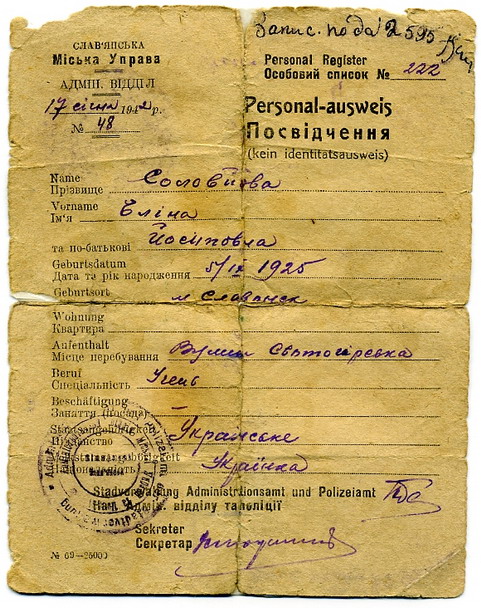 Запис. по
2595
СЛАВ'ЯНСЬКА
Міська Управа
АДМІН. ВІДДІЛ
17 січня 1942 р.
№ 48
Personal Register
Особовий список № 222
Personal-ausweis
Посвідчення
(kein identitätsausweis)
Name
Прізвище
Vorname
Ім'я Еліна
та по-батькові Йосиповна
Geburtsdatum
Дата та рік народження 5/IX 1925
Geburtsort м. Славянск
Wohnung
Квартира
Aufenthalt
Місце перебування Вулиця Святогірська
Beruf
Спеціяльність Учень
Beschäftigung
Заняття (посада) –
Staatsangehörigkeit
Підданство Українське
Українка
Stadverwaltung Administrionsamt und Polizeiamt
Нач. Адмін. відділу та поліції
Sekreter
Секретар
№ 69–25000